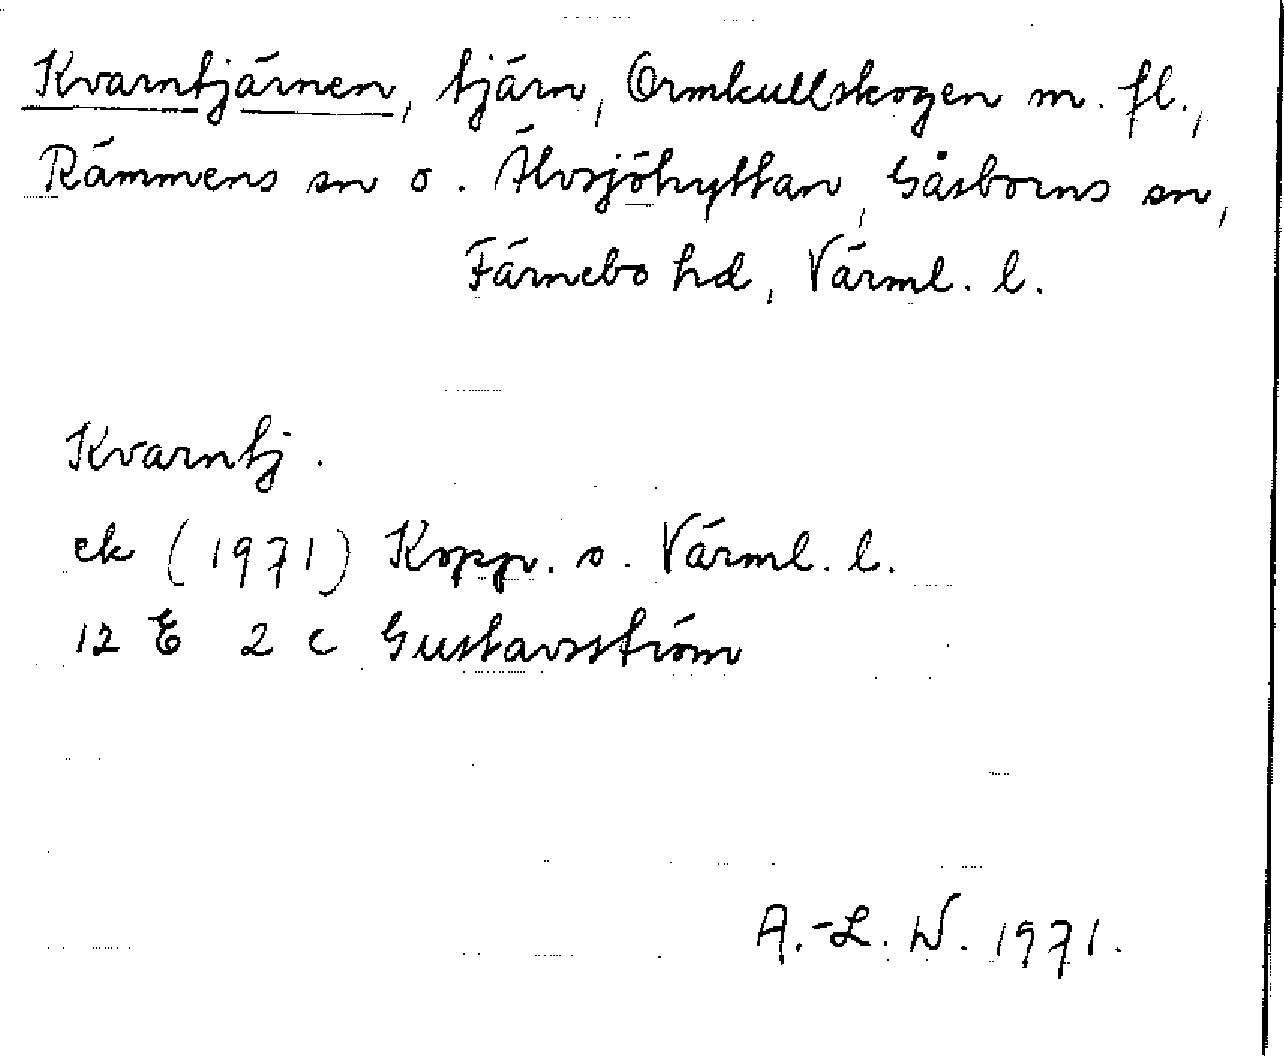 Kvarntjärnen, tjärn, Ormkullskogen m. fl.,
Rämmens sn o. Älvsjöhyttan, Gåsborns sn,
Färnebo hd, Värml. l.
Kvarntj.
ek (1971) Kopp. o. Värml. l.
12 E 2 c Gustavsström
A.-L. W. 1971.